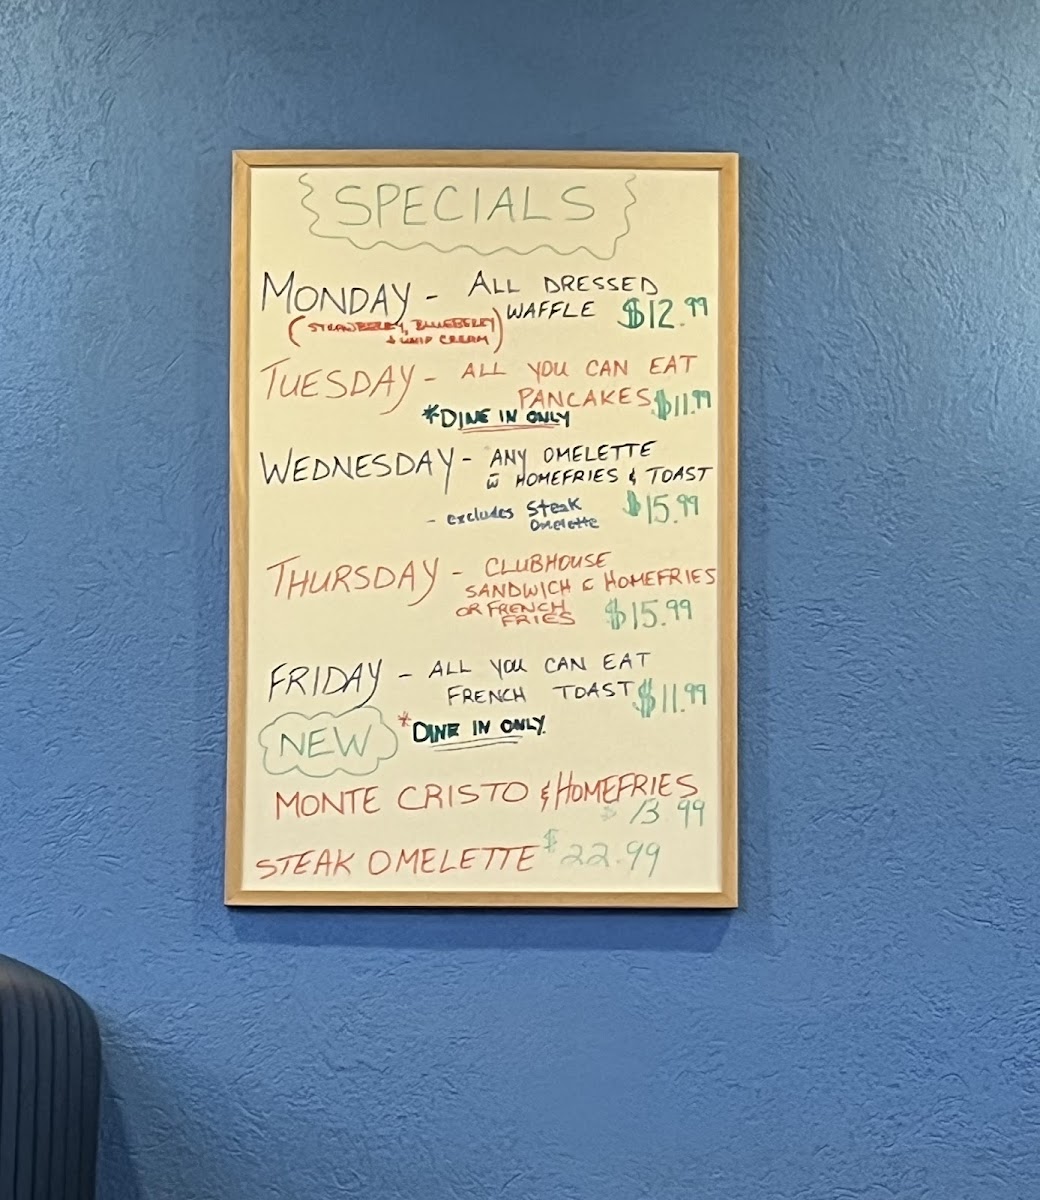 SPECIALS
MONDAY - ALL DRESSED
WAFFLE $12.99
(STRAWBERRY, BLUEBERRY
& WHIP CREAM)
TUESDAY - ALL YOU CAN EAT
PANCAKES $11.99
*DINE IN ONLY
WEDNESDAY - ANY OMELETTE
w̄ HOMEFRIES & TOAST
- excludes Steak Omelette $15.99
THURSDAY - CLUBHOUSE
SANDWICH c HOMEFRIES
OR FRENCH FRIES $15.99
FRIDAY - ALL YOU CAN EAT
FRENCH TOAST $11.99
*DINE IN ONLY.
NEW
MONTE CRISTO & HOMEFRIES
$13.99
STEAK OMELETTE $22.99